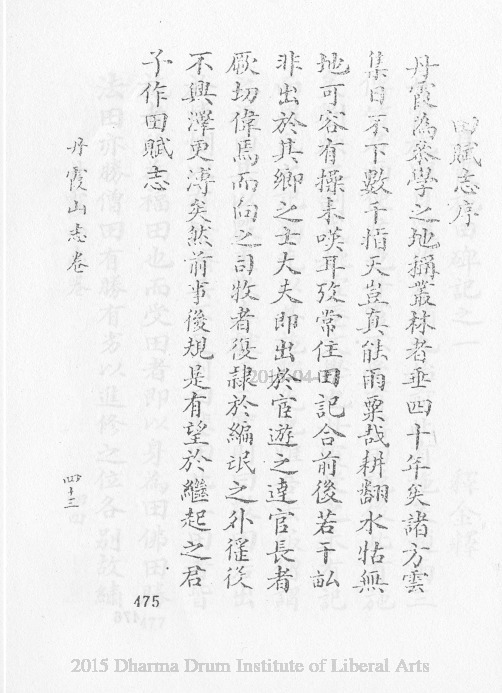 田賦志序
丹霞為叅學之地稱叢林者垂四十年矣諸方雲
集日不下數千指天豈真能雨粟哉耕翻水牯無
地可容有操耒嘆耳攷常住田記合前後若干畝
非出於其鄉之士大夫即出於宦遊之達官長者
厥功偉焉而向之司牧者復隸於編氓之外徭役
不興澤更溥矣然前事後規是有望於繼起之君
子作田賦志
丹霞山志卷
四十三
475
2015 Dharma Drum Institute of Liberal Arts